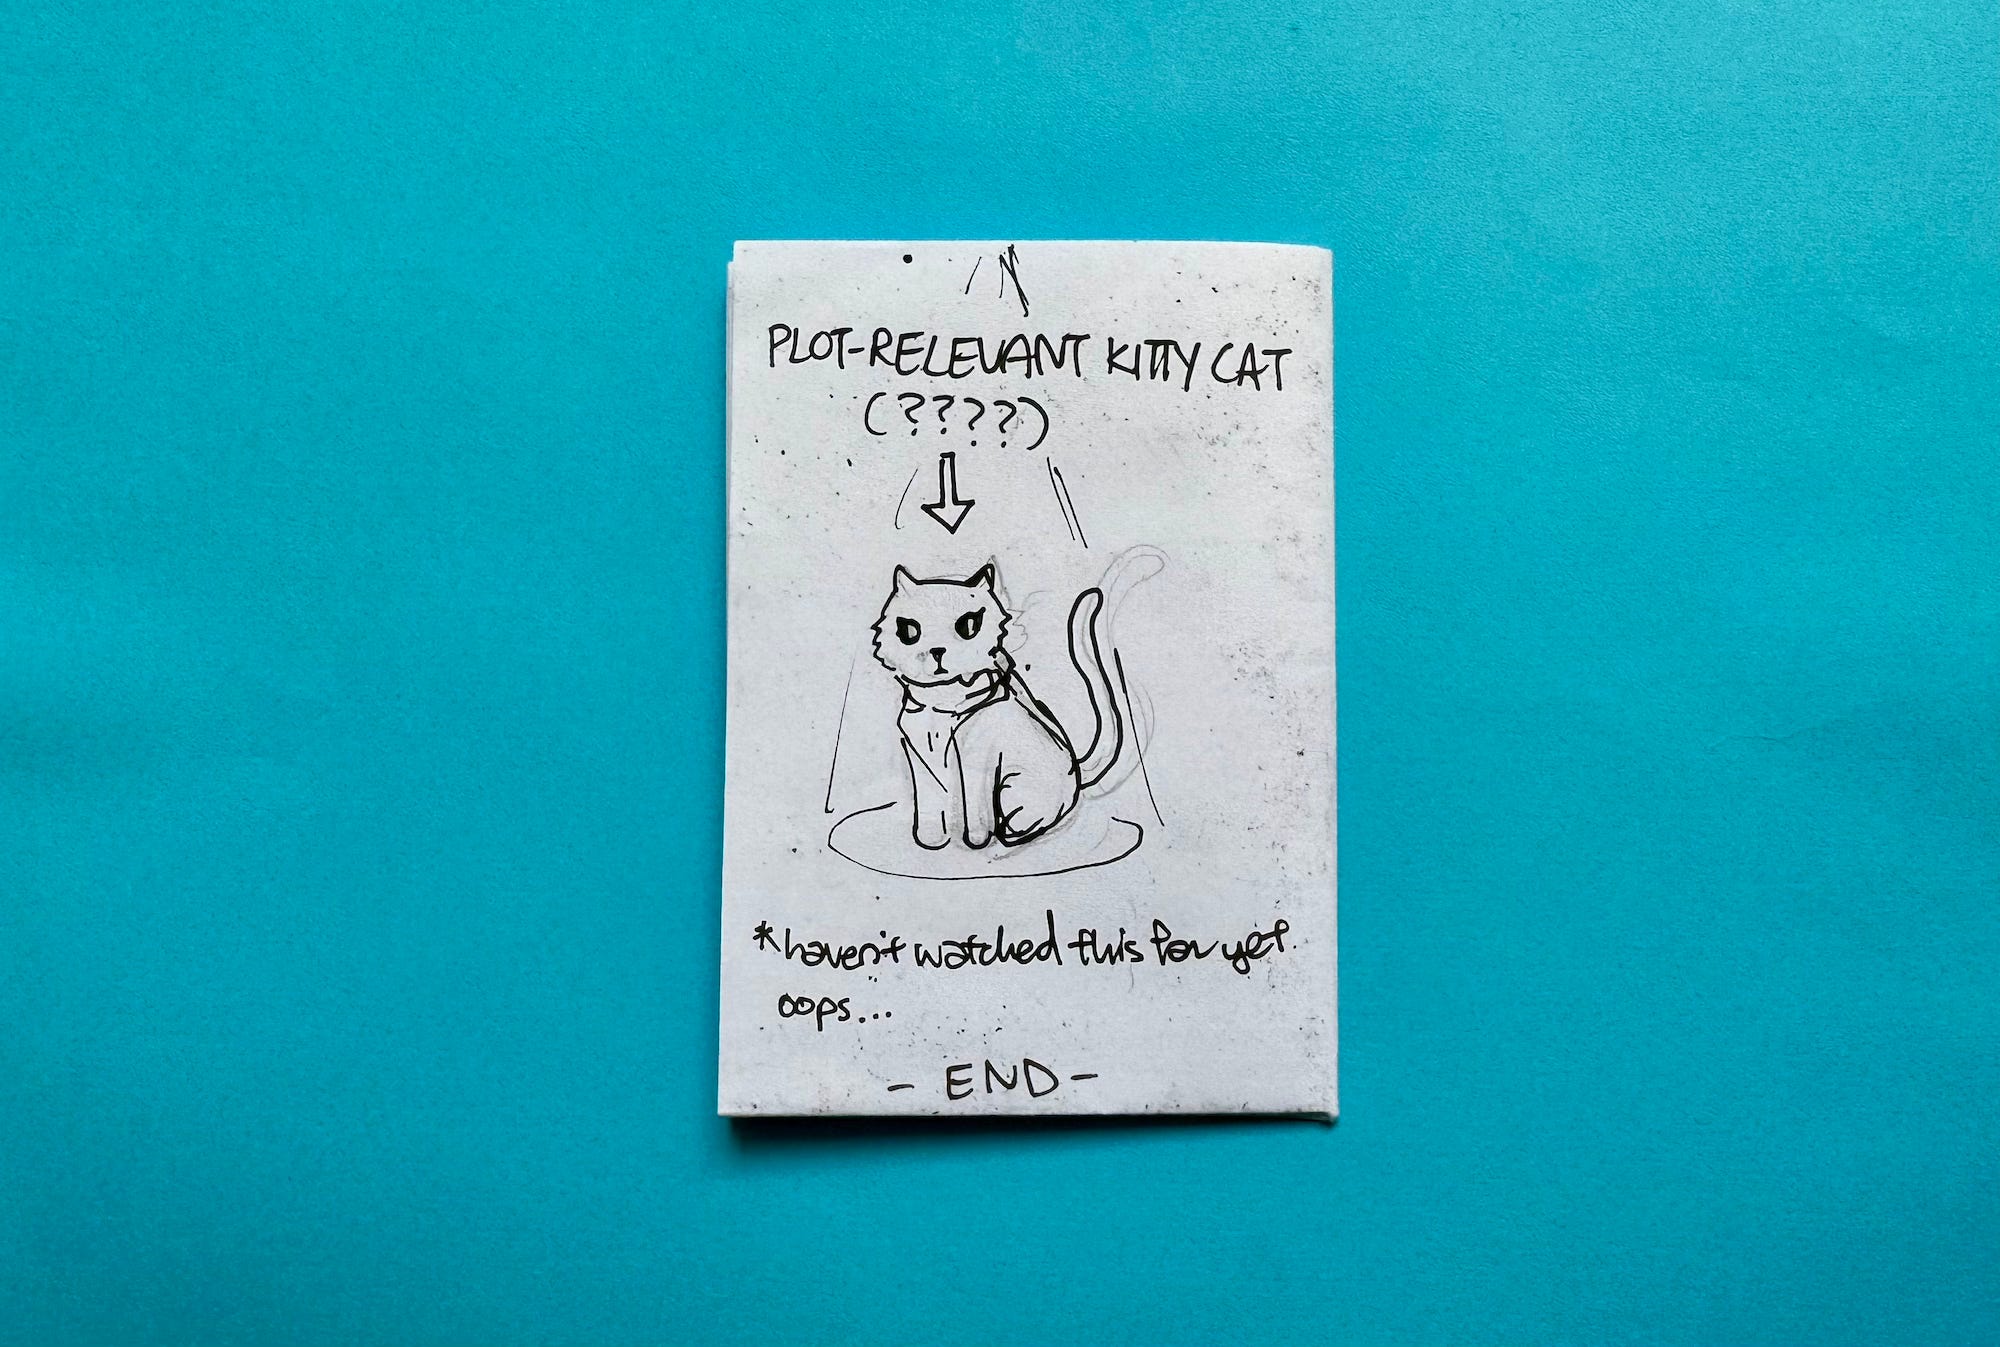 PLOT-RELEVANT KITTY CAT
(????)
*haven't watched this far yet
oops...
- END -